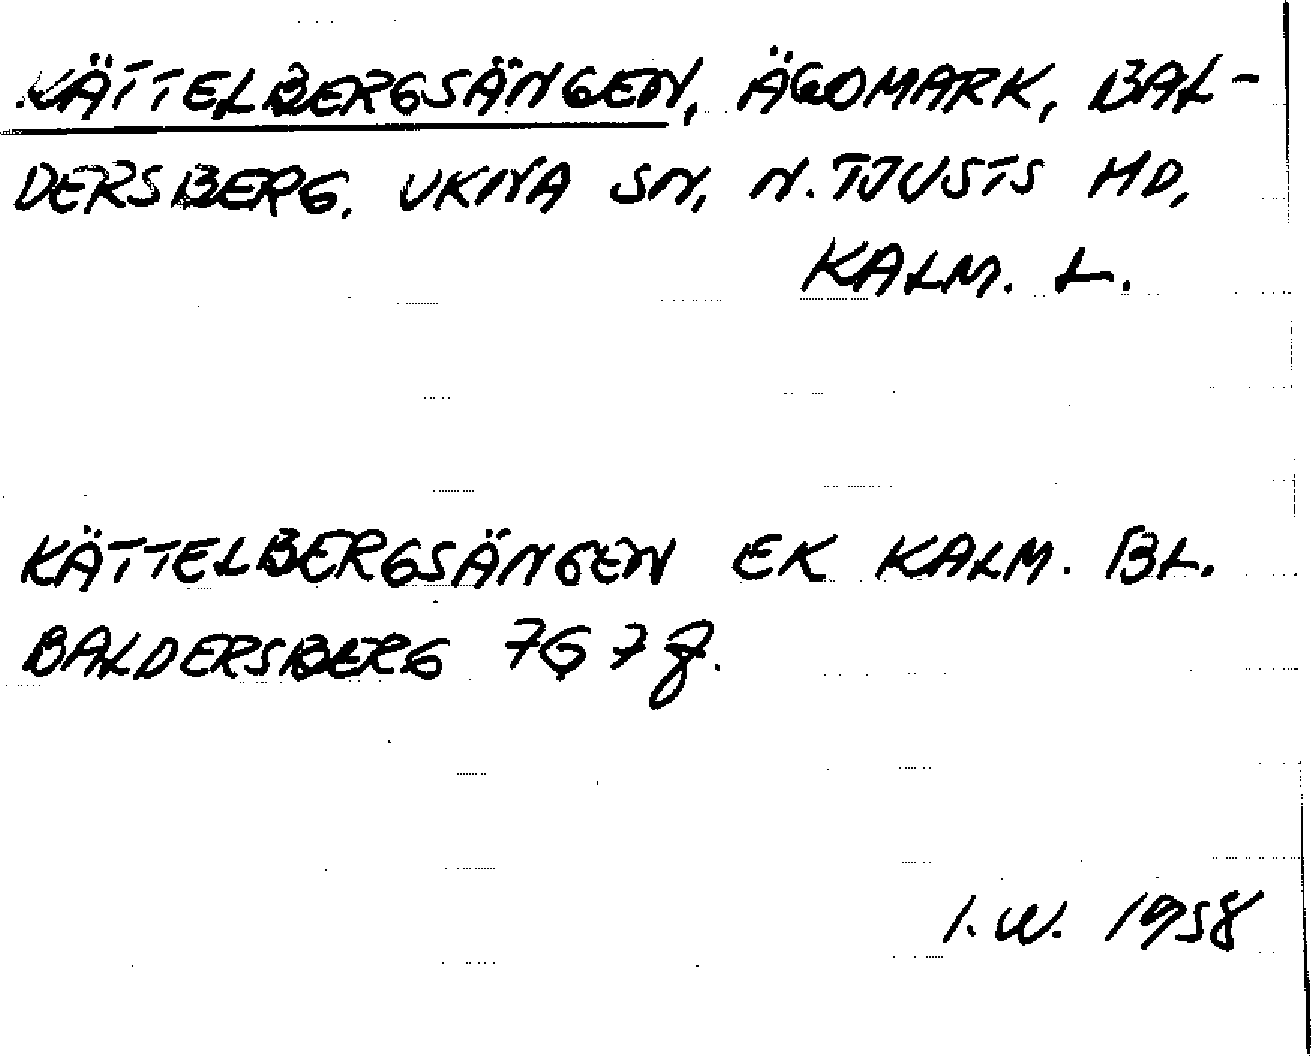 KÄTTELBERGSÄNGEN, ÄGOMARK, BAL-
DERSBERG, UKNA SN, N. TJUSTS HD,
KALM. L.
KÄTTELBERGSÄNGEN EK KALM. BL.
BALDERSBERG 7G 7g.
I. W. 1958